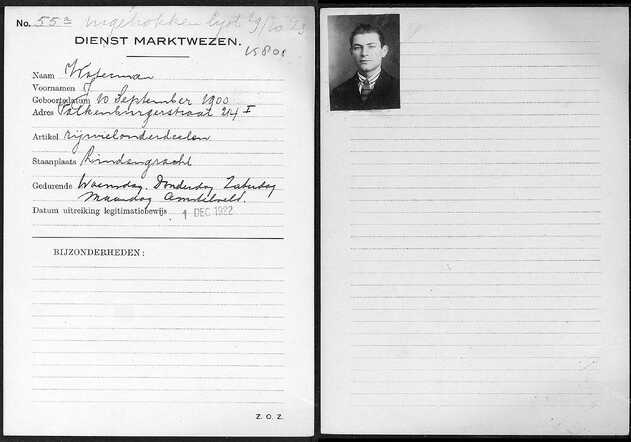 No. 553 Ingetrokken 29/10 '23
DIENST MARKTWEZEN.
Naam
Voornamen J
Geboortedatum 10 September 1900
Adres Valkenburgerstraat 214 I
Artikel rijwielonderdeelen
Staanplaats Lindengracht
Gedurende Woensdag. Donderdag Zaterdag
Maandag Amstelveld.
Datum uitreiking legitimatiebewijs 1 DEC 1922
BIJZONDERHEDEN:
Z. O. Z.